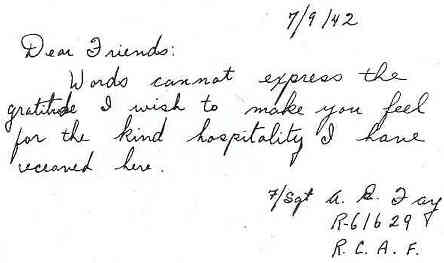 7/9/42
Dear Friends:
Words cannot express the
gratitude I wish to make you feel
for the kind hospitality I have
receaved here.
F/Sgt A. E. Fay
R-61629
R.C.A.F.